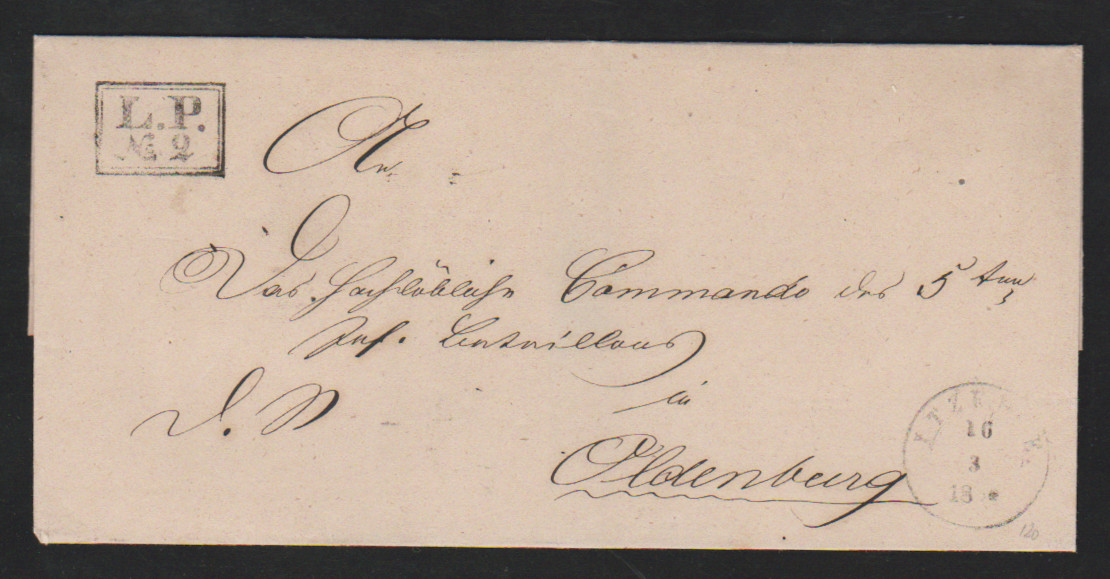 L.P.
№ 2
An
Das hochlöbliche Commando des 5 ten
Inf. Bataillons
in
D. S.
Oldenburg
16
3
18
120